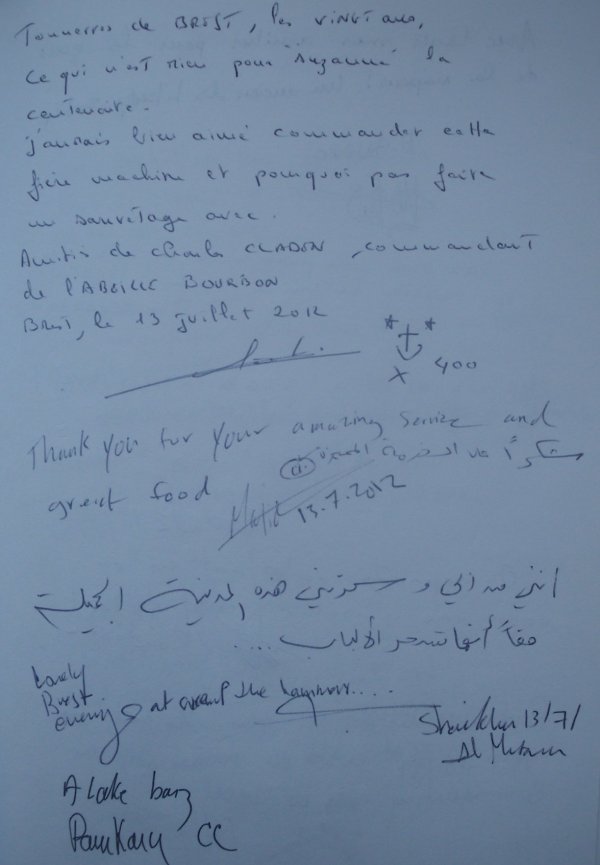 Tonnerres de BREST, les VINGT ans,
Ce qui n'est rien pour Suzanne la
centenaire.
j'aurais bien aimé commander cette
fière machine et pourquoi pas faire
un sauvetage avec.
Amitiés de Charles CLADEN, commandant
de l'ABEILLE BOURBON
Brest, le 13 juillet 2012
400
Thank you for your amazing service and
great food
شكراً على الخدمة المميزة
13.7.2012
هذه المدينة الجميلة
حقاً أنها تسحر الألباب....
Lovely
Brest
at the
13/7/
Al
A
CC